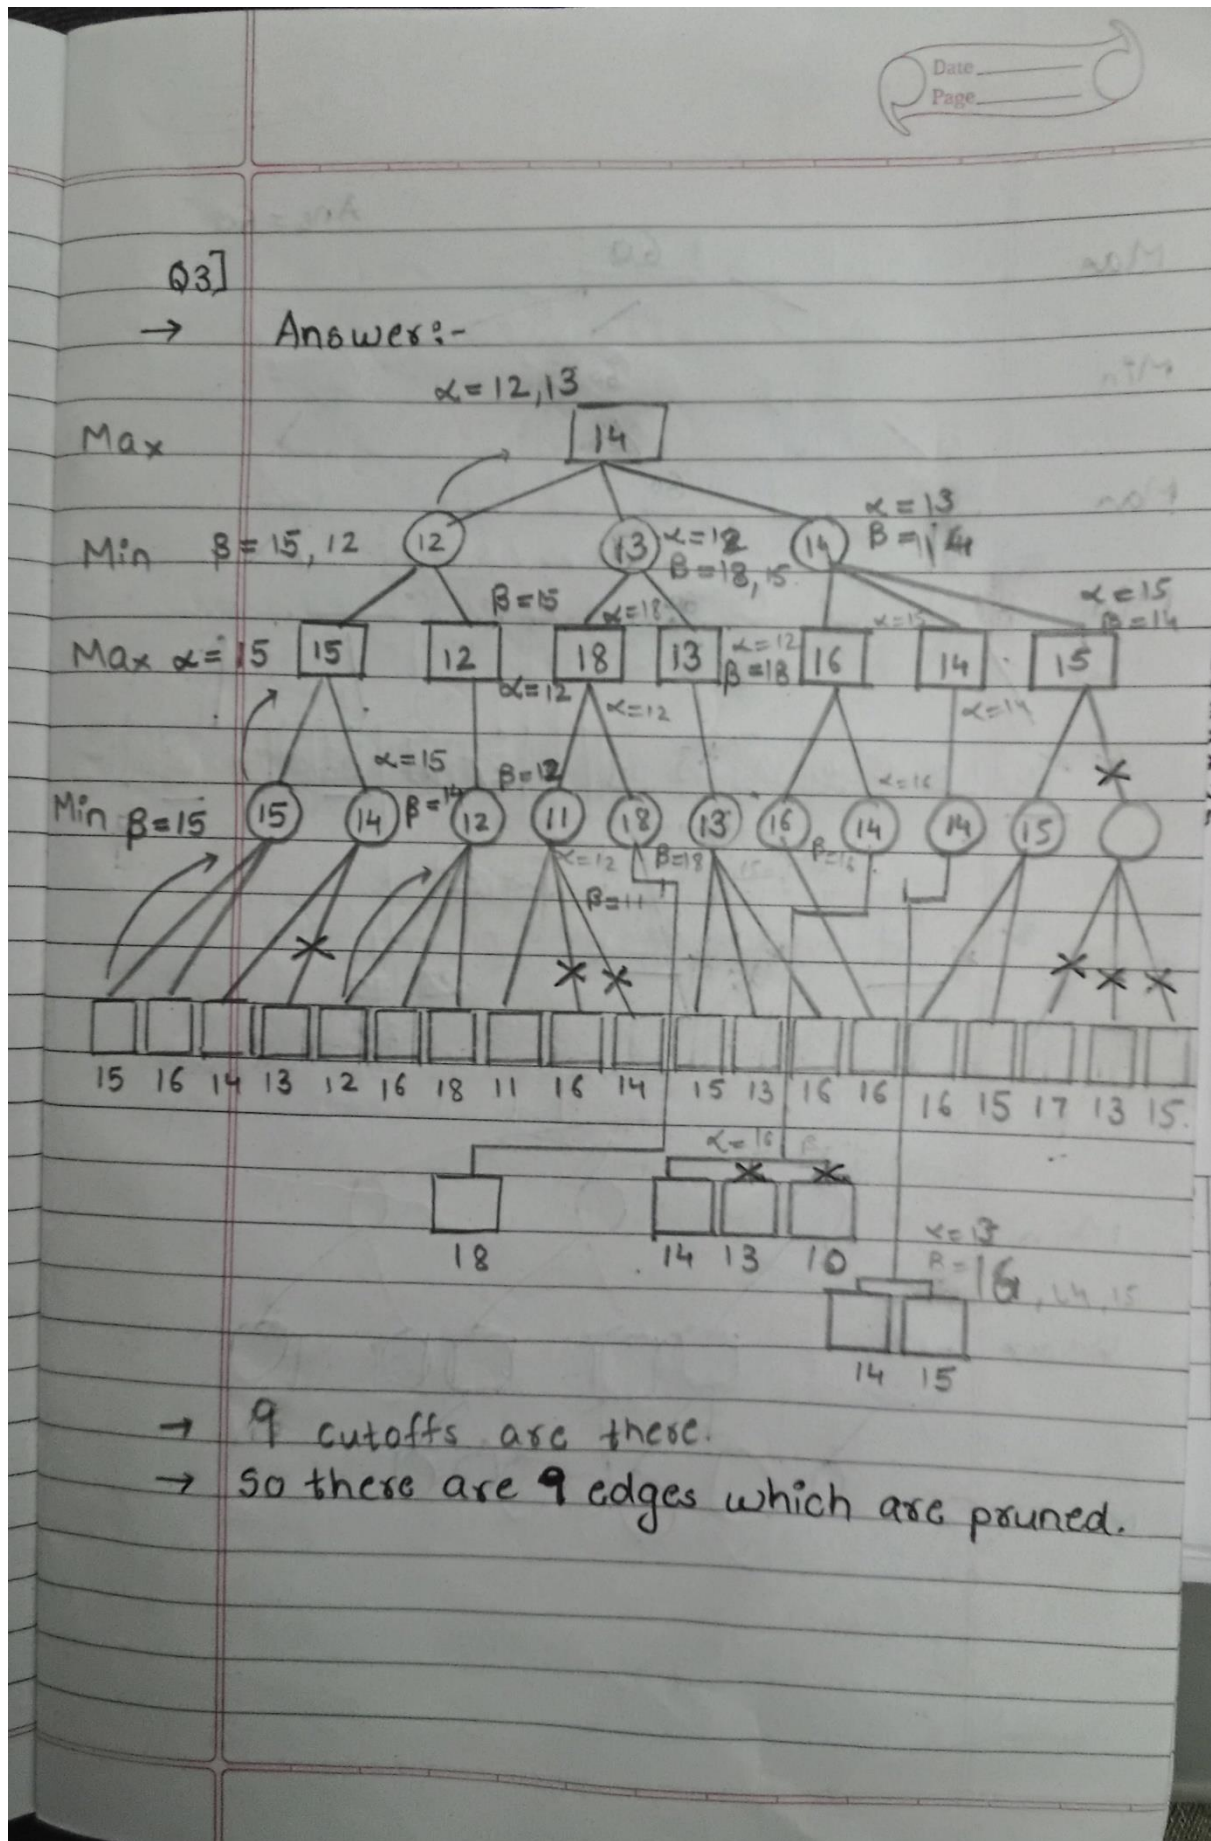 Date
Page
Q3]
→ Answer:-
α = 12, 13
Max 14
α = 13
Min β = 15, 12 12 13 α = 12 14 β = 14
β = 18, 15
β = 15 α = 18 α = 15
α = 15 β = 14
Max α = 15 15 12 18 13 α = 12 16 14 15
β = 18
α = 12 α = 12 α = 14
α = 15 β = 12 α = 16
Min β = 15 15 14 β = 14 12 11 18 13 16 14 14 15
α = 12 β = 18 β = 16
β = 11
15 16 14 13 12 16 18 11 16 14 15 13 16 16 16 15 17 13 15
α = 16 β
18 14 13 10
α = 13
β = 16, 14, 15
14 15
→ 9 cutoffs are there.
→ So there are 9 edges which are pruned.